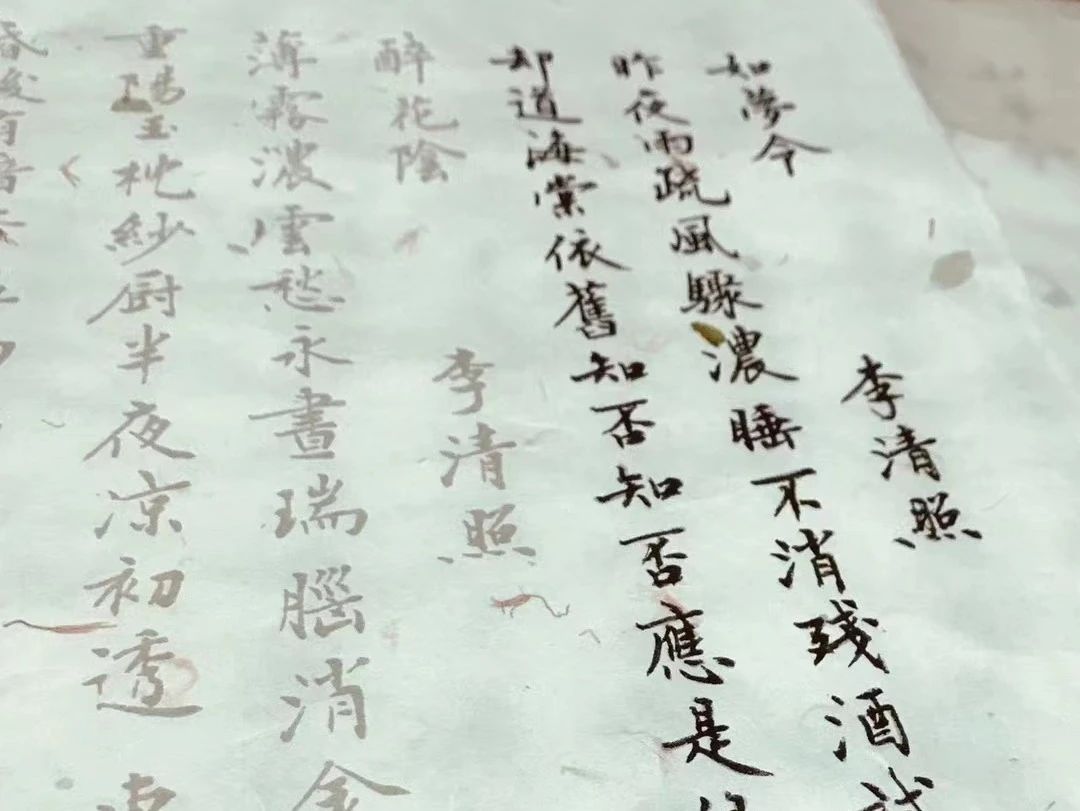 如夢令 李清照
昨夜雨疏風驟濃睡不消殘酒試
却道海棠依舊知否知否應是
醉花陰 李清照
薄霧濃雲愁永晝瑞腦消金
重陽玉枕紗厨半夜凉初透
昏後有暗